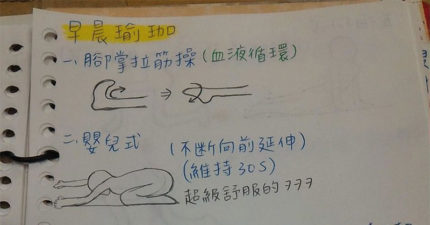 早晨瑜珈
一、腳掌拉筋操(血液循環)
二、嬰兒式
(不斷向前延伸)
(維持30S)
超級舒服的ㄋㄋㄋ